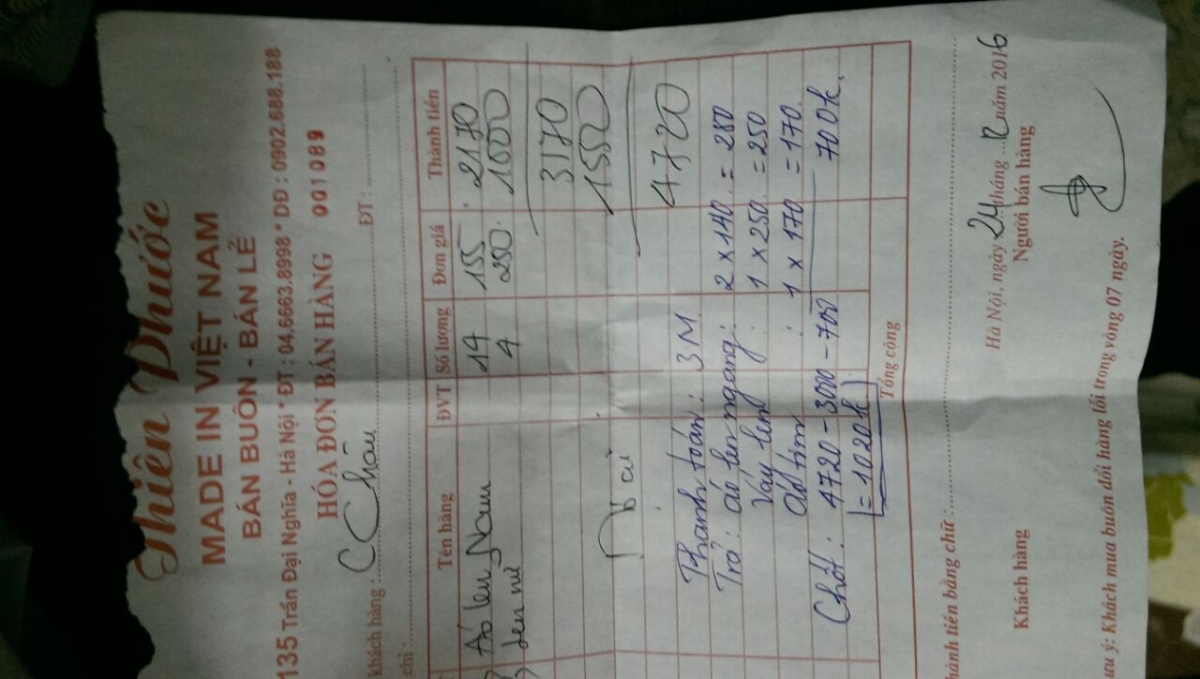 Thiên Phước
MADE IN VIỆT NAM
BÁN BUÔN - BÁN LẺ
135 Trần Đại Nghĩa - Hà Nội * ĐT : 04.6663.8998 * DĐ : 0902.688.188
HÓA ĐƠN BÁN HÀNG 001089
khách hàng : C Châu
chỉ : ĐT :
Tên hàng ĐVT Số lượng Đơn giá Thành tiền
Áo len Nam 14 155 2170
len nữ 4 250 1000
3170
Nợ cũ 1550
4720
Thanh toán : 3M
Trả : áo len ngang : 2 x 140 = 280
Váy len : 1 x 250 = 250
Áo tím : 1 x 170 = 170
Chốt : 4720 - 3000 - 700 700k.
= 1020k
Tổng cộng
hành tiền bằng chữ :
Hà Nội, ngày 24 tháng 12 năm 2016
Khách hàng Người bán hàng
ưu ý: Khách mua buôn đổi hàng lỗi trong vòng 07 ngày.